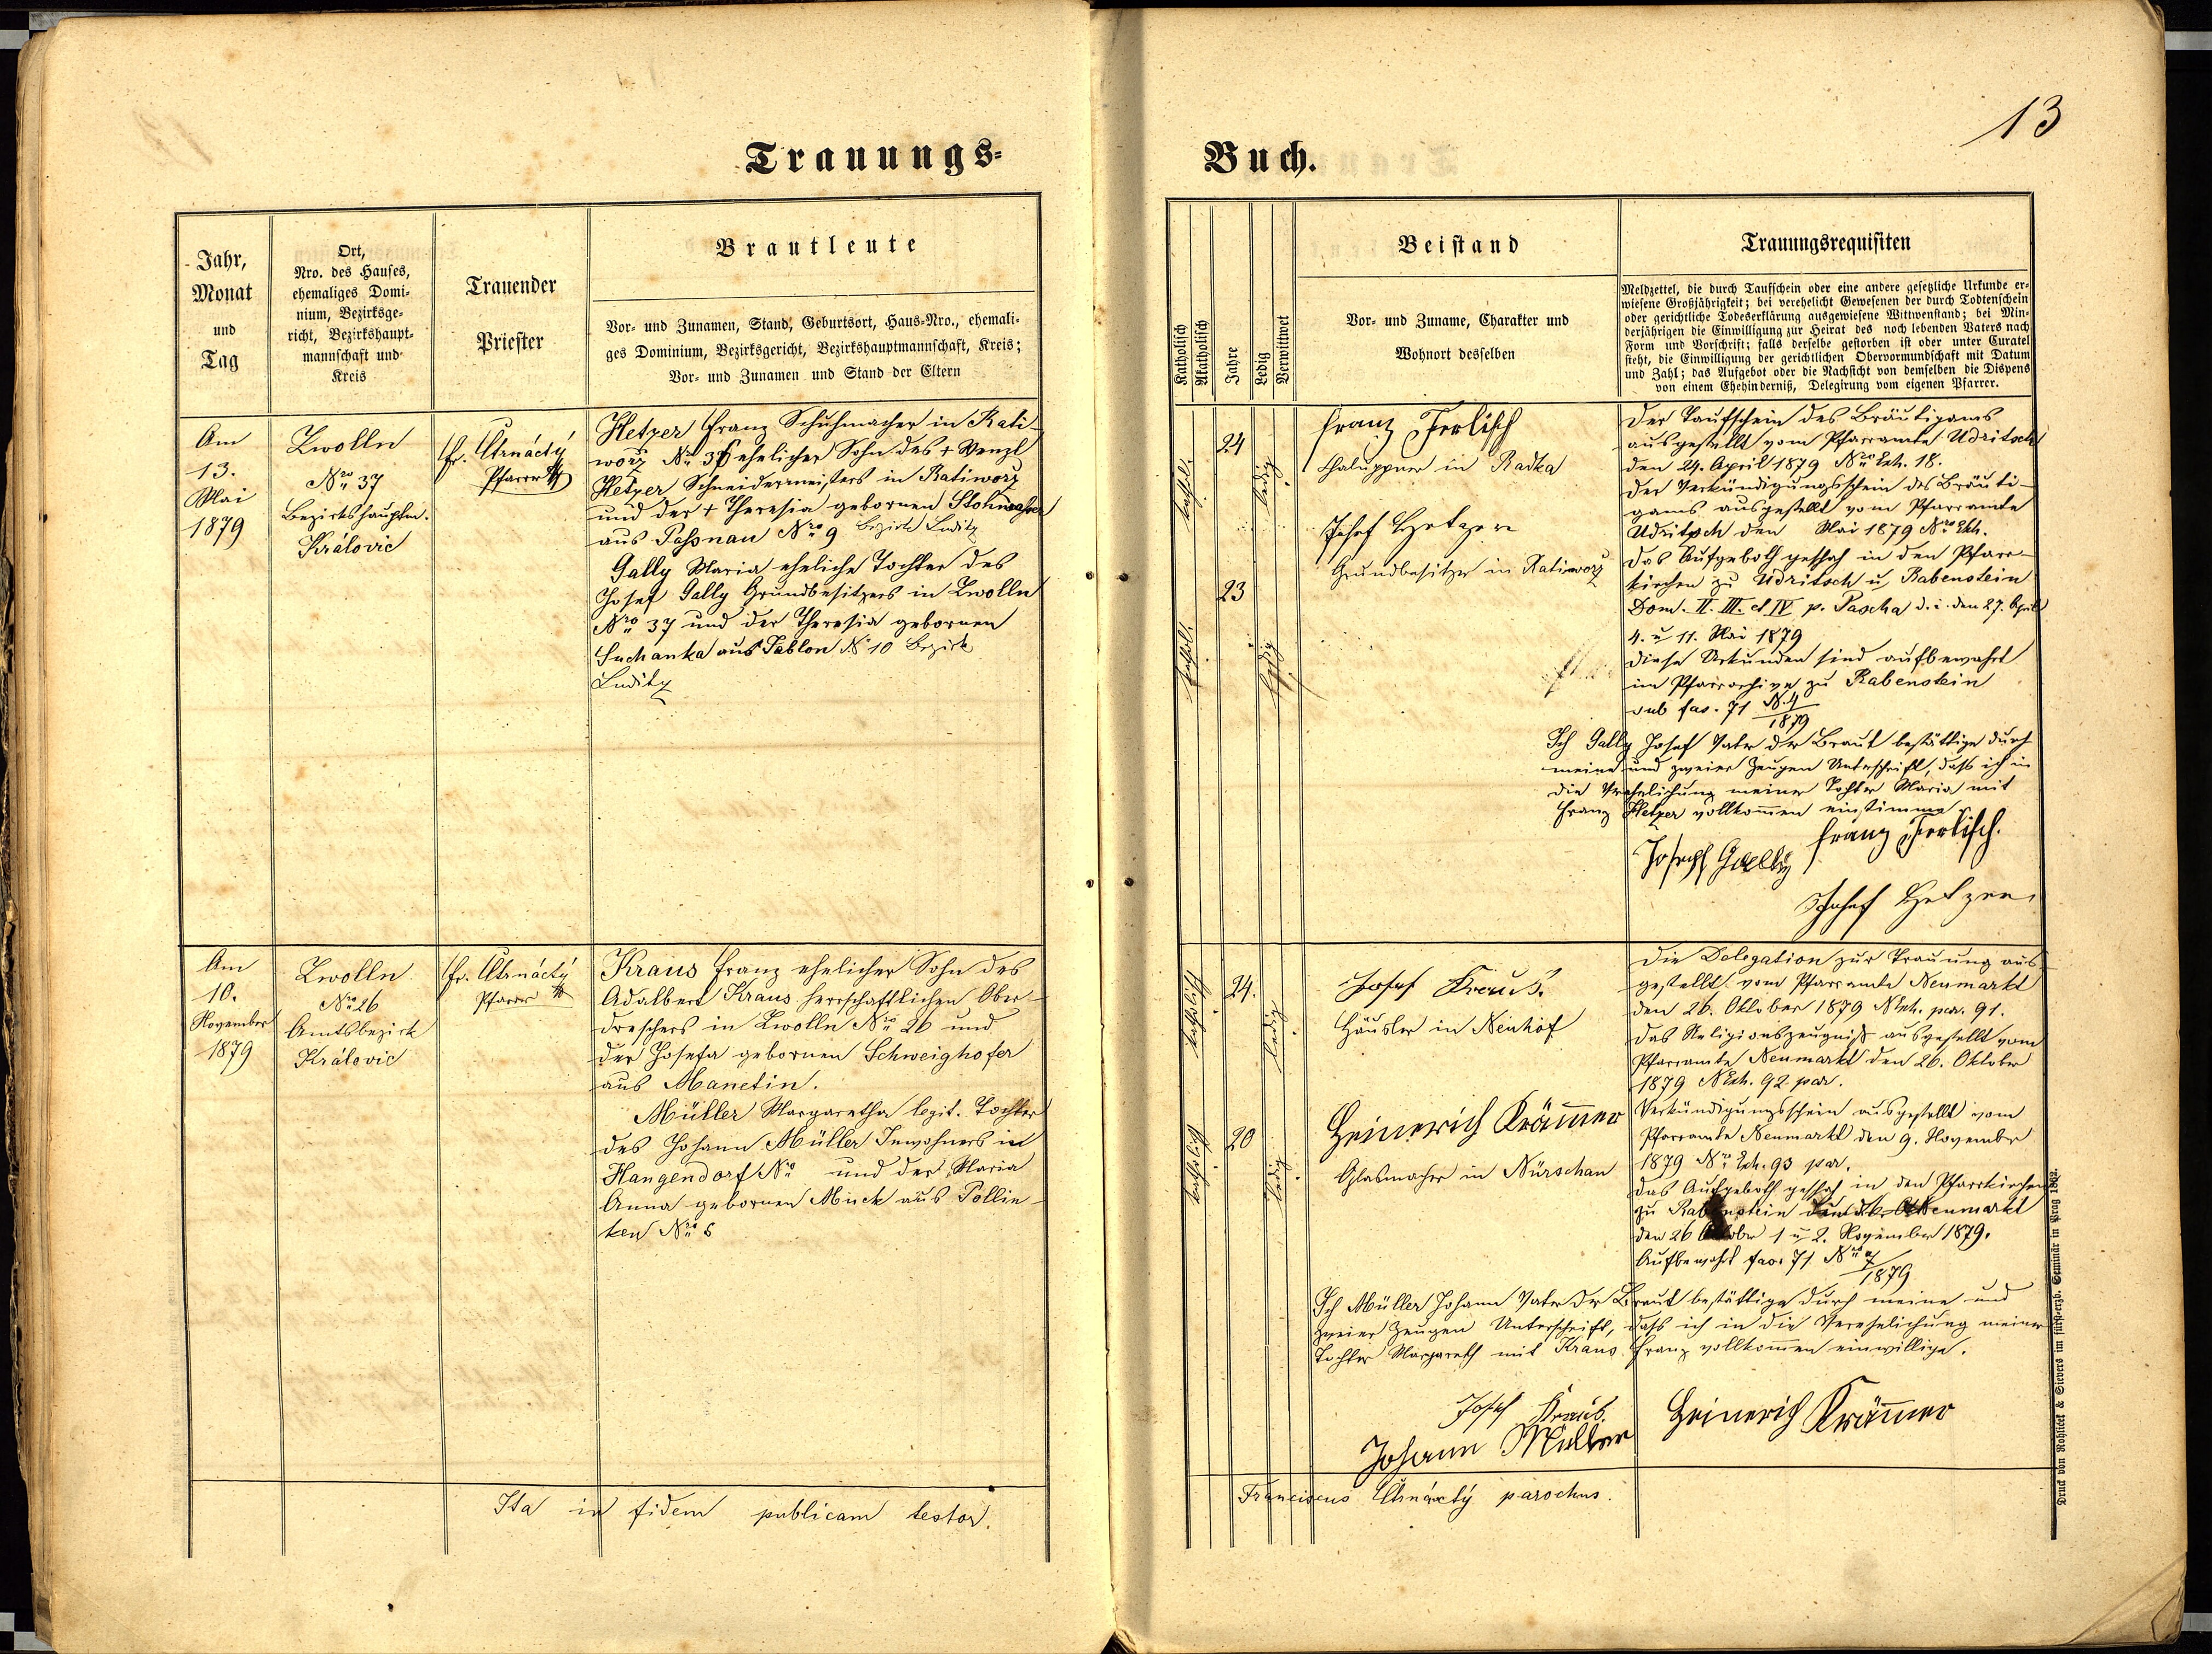 13
Trauungs-
Buch.
Jahr,
Monat
und
Tag
Ort,
Nro. des Hauses,
ehemaliges Domi-
nium, Bezirksge-
richt, Bezirkshaupt-
mannschaft und
Kreis
Trauender
Priester
Brautleute
Vor- und Zunamen, Stand, Geburtsort, Haus-Nro., ehemali-
ges Dominium, Bezirksgericht, Bezirkshauptmannschaft, Kreis;
Vor- und Zunamen und Stand der Eltern
Katholisch
Akatholisch
Jahre
Ledig
Verwittwet
Beistand
Vor- und Zuname, Charakter und
Wohnort desselben
Trauungsrequisiten
Meldzettel, die durch Taufschein oder eine andere gesetzliche Urkunde er-
wiesene Großjährigkeit; bei verehelicht Gewesenen der durch Todtenschein
oder gerichtliche Todeserklärung ausgewiesene Wittwenstand; bei Min-
derjährigen die Einwilligung zur Heirat des noch lebenden Vaters nach
Form und Vorschrift; falls derselbe gestorben ist oder unter Curatel
steht, die Einwilligung der gerichtlichen Obervormundschaft mit Datum
und Zahl; das Aufgebot oder die Nachsicht von demselben die Dispens
von einem Ehehinderniß, Delegirung vom eigenen Pfarrer.
Am
13.
Mai
1879
Zwolln
Nro 37
Bezirkshauptm.
Královic
Fr. Ctrnáctý
Pfarrer
Hetzer Franz Schuhmacher in Rati-
worz No 36 ehelicher Sohn des + Wenzl
Hetzer Schneidermeisters in Ratiworz
und der + Theresia gebornen
aus Passnau Nro 9 Bezirk Luditz
Gally Maria eheliche Tochter des
Josef Gally Grundbesitzers in Zwolln
Nro 37 und der Theresia gebornen
Suchanka aus Jablon No 10 Bezirk
Luditz
kathol.
24
ledig
kathol.
23
ledig
Franz Ferlisch
Chaluppner in Radka
Josef Hetzer
Grundbesitzer in Ratiworz
Der Taufschein des Bräutigams
ausgestellt vom Pfarramte Udritsch
den 24. April 1879 Nro Exh. 18.
Der Verkündigungsschein des Bräuti-
gams ausgestellt vom Pfarramte
Udritsch den Mai 1879 Nro Exh.
Das Aufgeboth geschah in den Pfarr-
kirchen zu Udritsch u. Rabenstein
Dom. II. III. et IV p. Pascha d. i. den 27. April
4. u 11. Mai 1879
Diese Urkunden sind aufbewahrt
im Pfarrarchive zu Rabenstein
sub fas. 71 N. 4/1879
Ich Gally Josef Vater der Braut bestättige durch
meine und zweier Zeugen Unterschrift, daß ich in
die Verehelichung meiner Tochter Maria mit
Franz Hetzer vollkommen einstimme.
Franz Ferlisch.
Joseph Gally
Josef Hetzer
Am
10.
November
1879
Zwolln
Nro 26
Amtsbezirk
Královic
Fr. Ctrnáctý
Pfarrer
Kraus Franz ehelicher Sohn des
Adalbert Kraus herrschaftlichen Ober-
dreschers in Zwolln Nro 26 und
der Josefa gebornen Schweighofer
aus Manetin.
Müller Margaretha legit. Tochter
des Johann Müller Inwohners in
Hangendorf Nro und der Maria
Anna gebornen Mück aus Pollin-
ken Nro 8
katholisch
24.
ledig
katholisch
20
ledig
Josef Kraus.
Häusler in Neuhof
Heinerich Krämmer
Glasmacher in Nürschan
Die Delegation zur Trauung aus-
gestellt vom Pfarramte Neumarkt
den 26. Oktober 1879 NExh. par. 91.
Das Religionszeugniß ausgestellt vom
Pfarramte Neumarkt den 26. Oktober
1879 NExh. 92 par.
Verkündigungsschein ausgestellt vom
Pfarramte Neumarkt den 9. November
1879 Nro Exh. 93 par.
Das Aufgeboth geschah in den Pfarrkirchen
zu Rabenstein Neumarkt
den 26 Oktober 1 u 2. November 1879.
Aufbewahrt fasc 71 Nro 7/1879
Ich Müller Johann Vater der Braut bestättige durch meine und
zweier Zeugen Unterschrift, daß ich in die Verehelichung meiner
Tochter Margareth mit Kraus Franz vollkommen einwillige.
Josef Kraus.
Heinerich Krämmer
Johann Müller
Ita in fidem publicam testor.
Franciscus Ctrnáctý parochus.
Druck von Rohliček & Sievers im fürst-erzb. Seminär in Prag 1862.